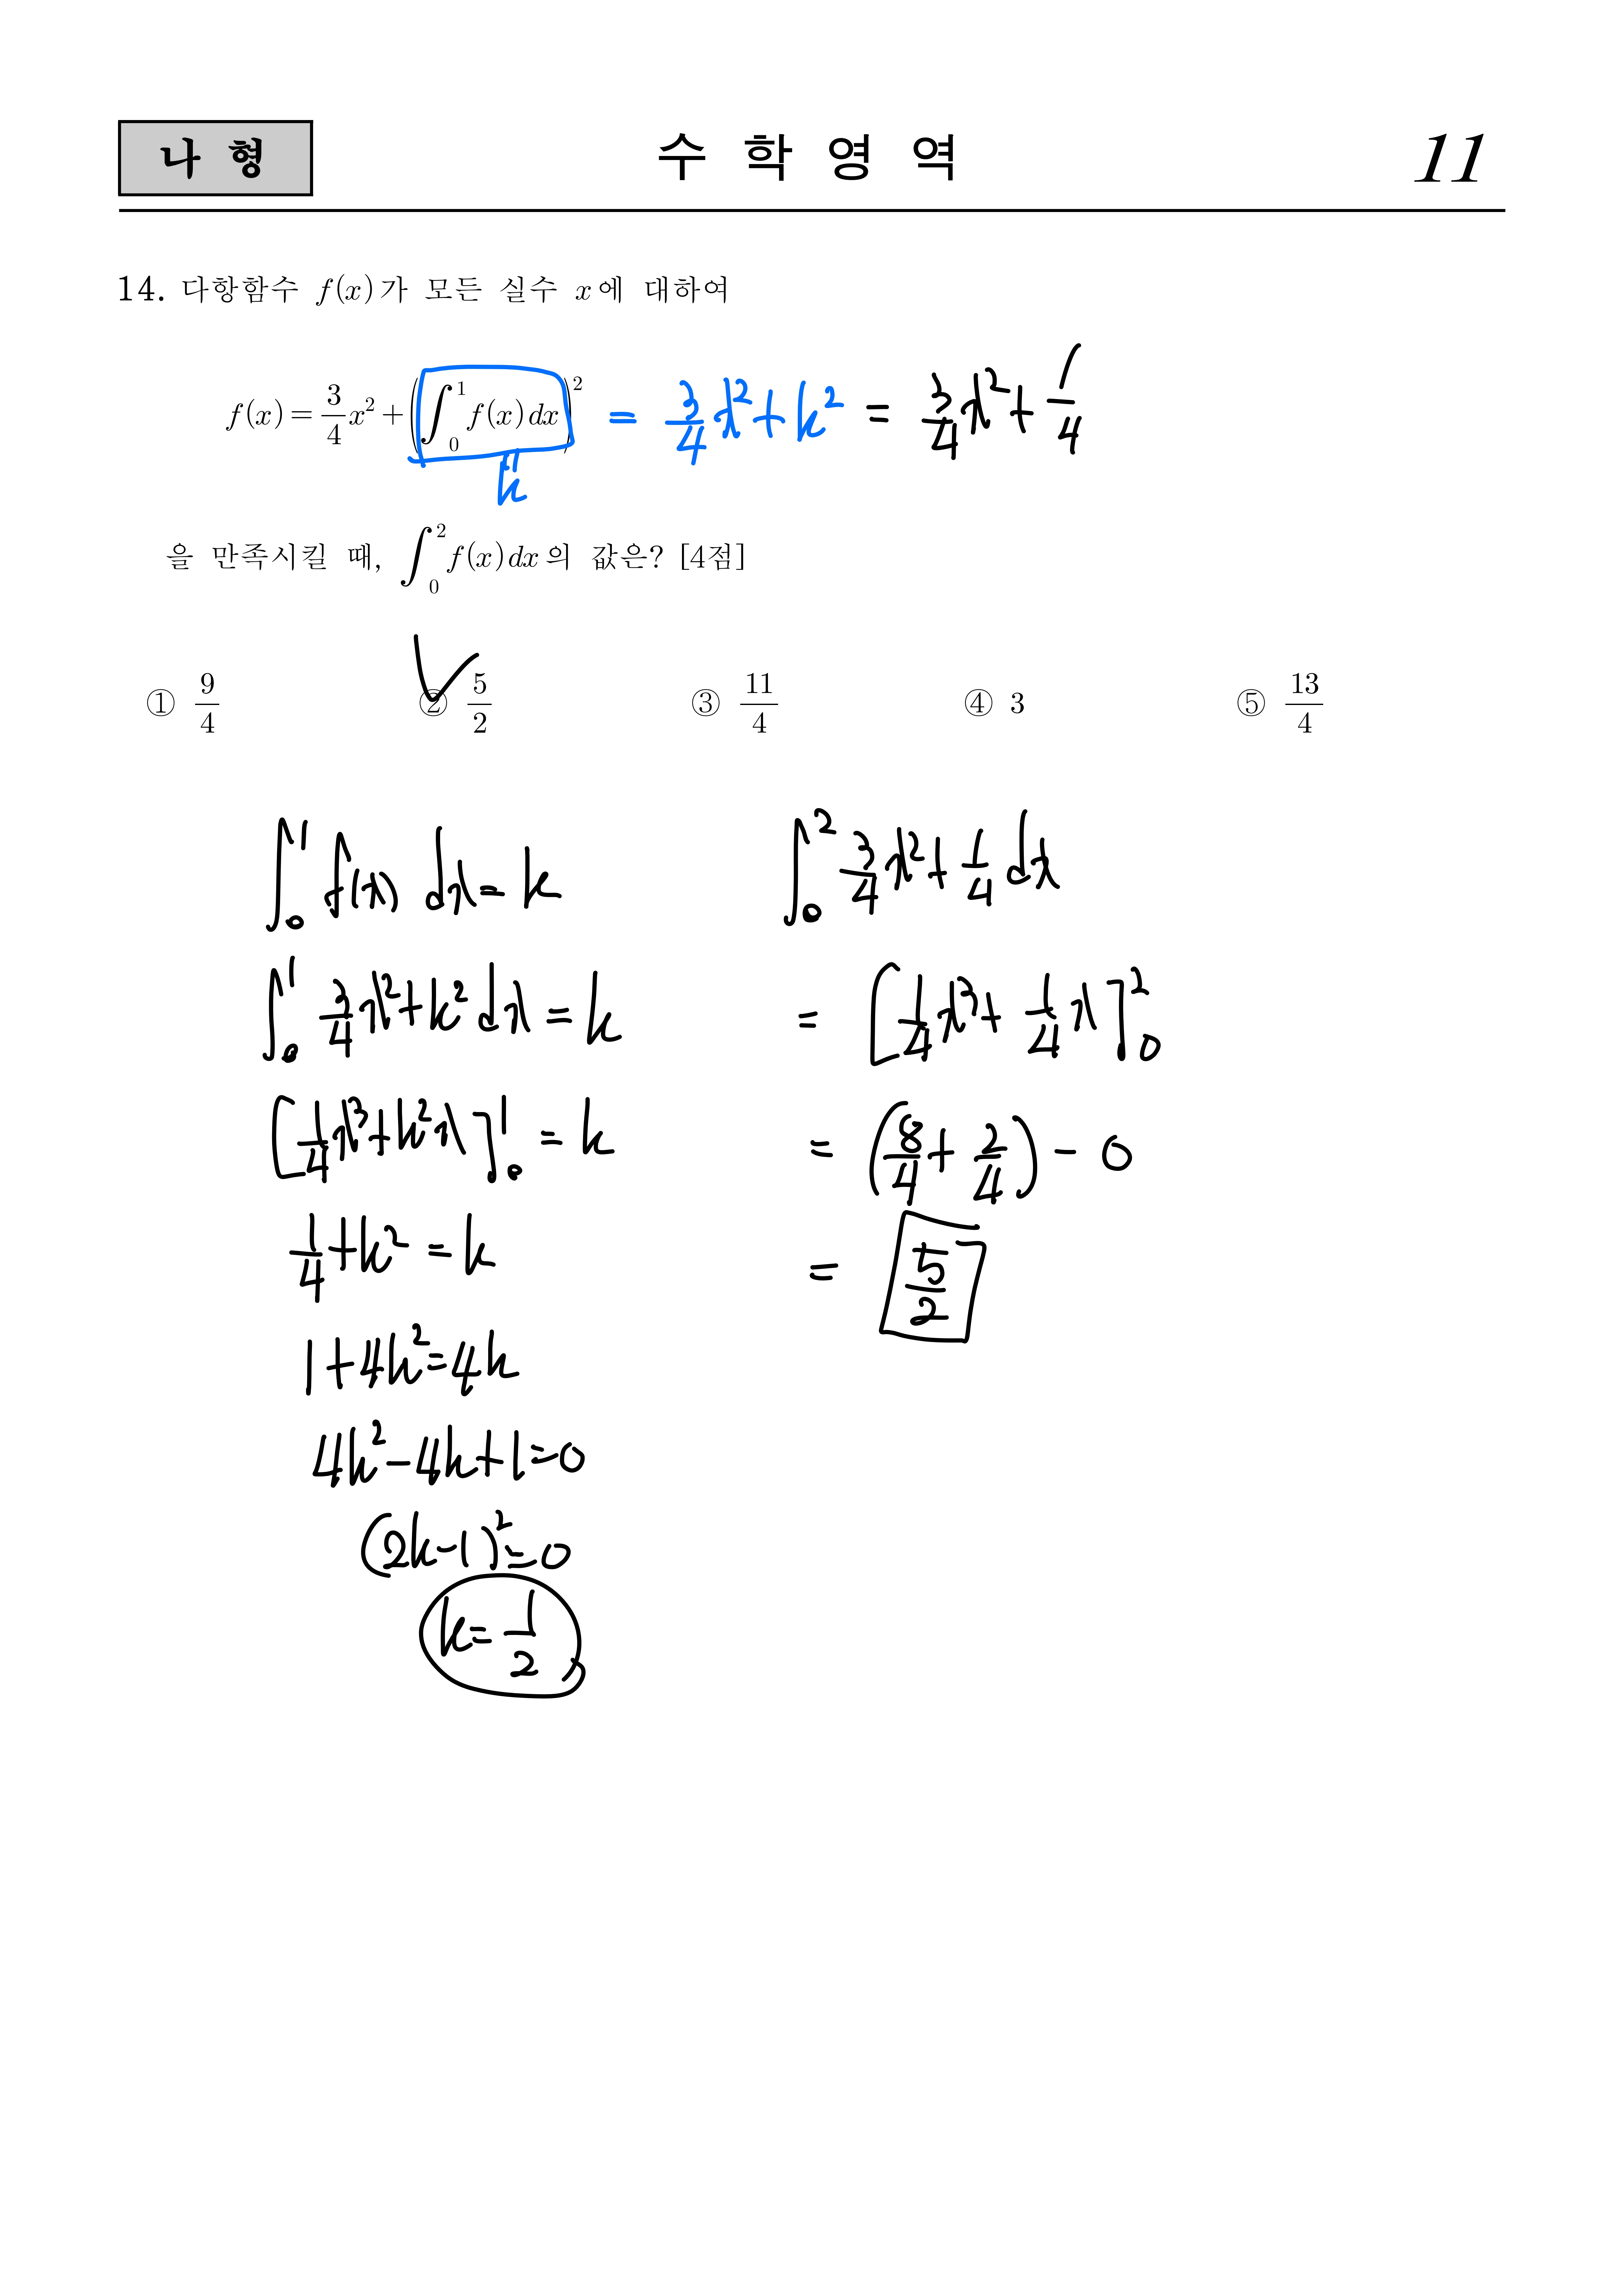 나 형 수 학 영 역 11
14. 다항함수 f(x)가 모든 실수 x에 대하여
f(x) = 3/4 x² + (∫₀¹ f(x)dx)² = 3/4 x² + k² = 3/4 x² + 1/4
k
을 만족시킬 때, ∫₀² f(x)dx의 값은? [4점]
① 9/4 ② 5/2 ③ 11/4 ④ 3 ⑤ 13/4
∫₀¹ f(x) dx = k
∫₀¹ 3/4 x² + k² dx = k
[1/4 x³ + k² x]₀¹ = k
1/4 + k² = k
1 + 4k² = 4k
4k² - 4k + 1 = 0
(2k - 1)² = 0
k = 1/2
∫₀² 3/4 x² + 1/4 dx
= [1/4 x³ + 1/4 x]₀²
= (8/4 + 2/4) - 0
= 5/2